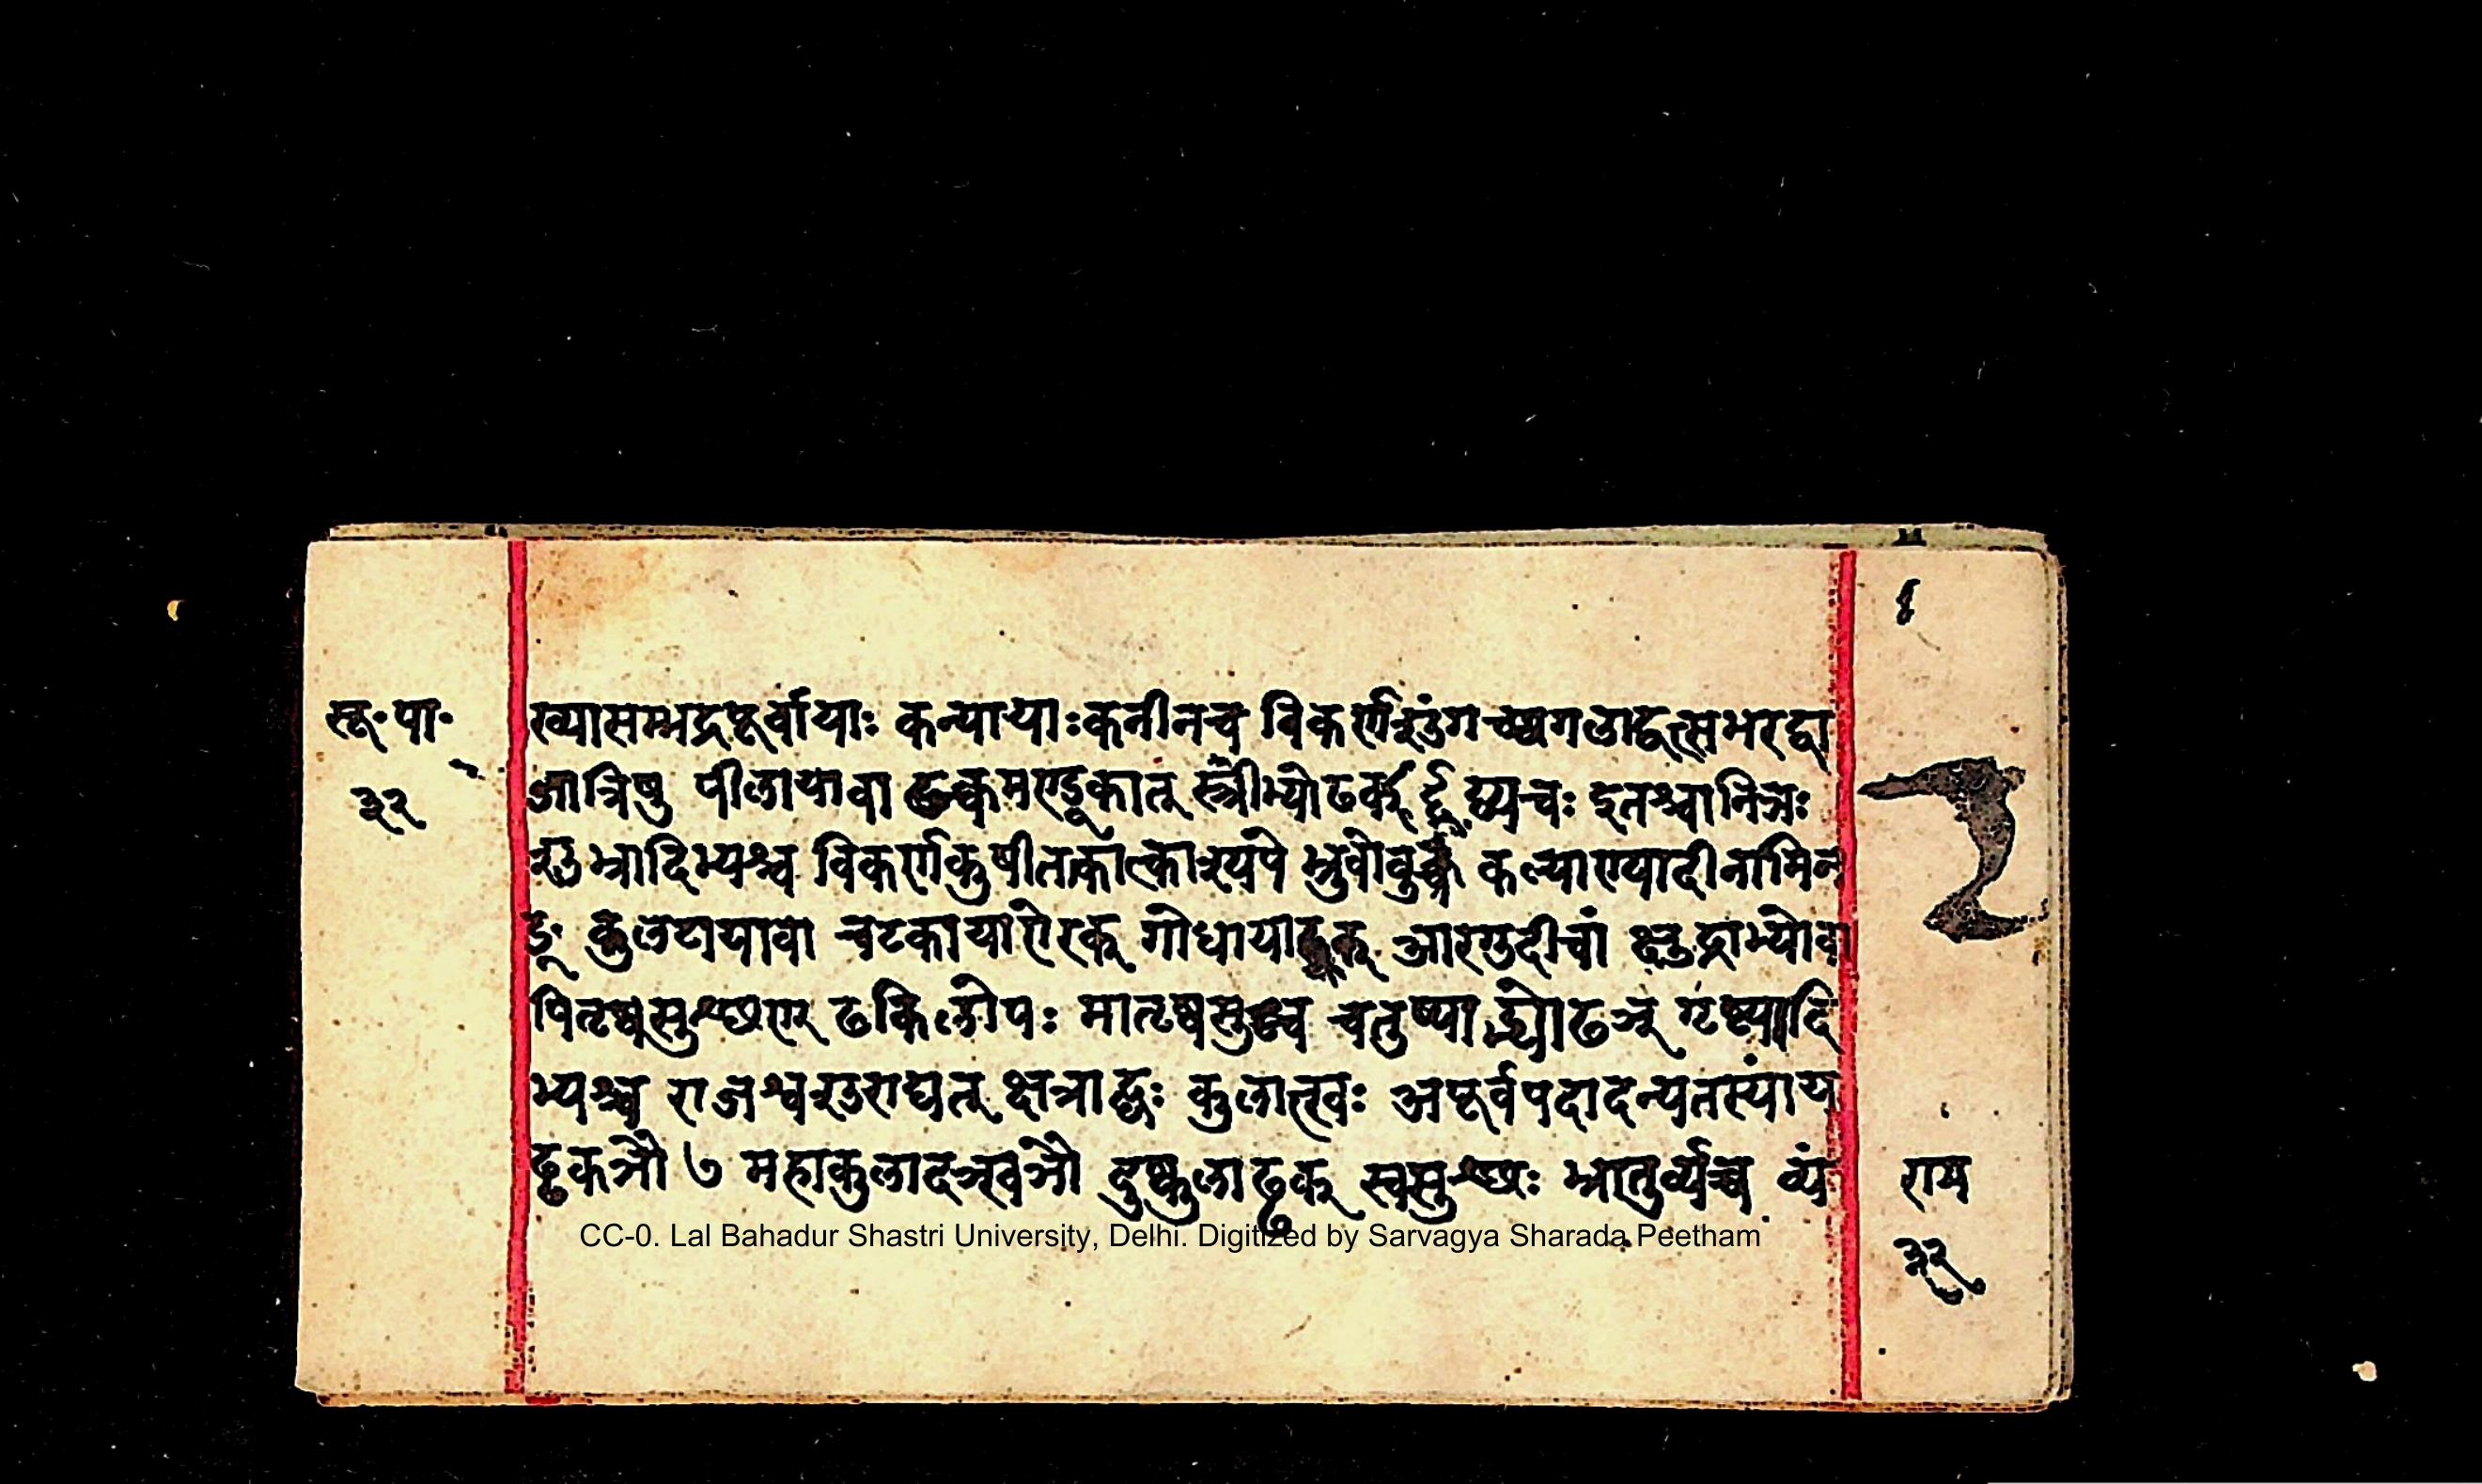 सू॰पा॰
३२
ख्यासम्भद्रपूर्वायाः कन्यायाःकनीनच विकर्णशुंगच्छगलाद्वत्सभरद्वा
जात्रिषु पीलायावा ढक्चमण्डूकात् स्त्रीभ्योढक् द्व्यचः इतश्चानिञः
शुभ्रादिभ्यश्च विकर्णकुषीतकात्काश्यपे भ्रुवोवुक्च कल्याण्यादीनामिन
ङ् कुलटायावा चटकायाऐरक् गोधायाढ्रक् आरगुदीचां क्षुद्राभ्योवा
पितृष्वसुश्छण् ढकिलोपः मातृष्वसुश्च चतुष्पाद्भ्योढञ् गृष्ट्यादि
भ्यश्च राजश्वशुराद्यत् क्षत्राद्घः कुलात्खः अपूर्वपदादन्यतरस्यांय
ड्ढकञौ ७ महाकुलादञ्खञौ दुष्कुलाड्ढक् स्वसुश्छः भ्रातुर्व्यच्च व्यं
राम
३२
CC-0. Lal Bahadur Shastri University, Delhi. Digitized by Sarvagya Sharada Peetham